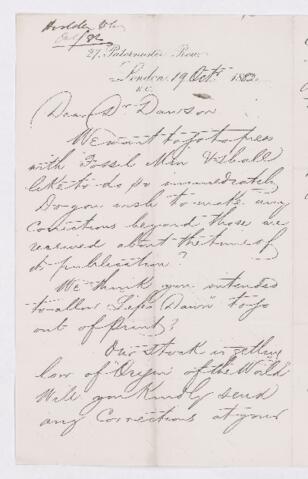 Hodder & Co
Oct/82
27, Paternoster Row,
London 19 Oct 1882
E.C.
Dear Dr Dawson
We want to go to press
with Fossil Men & shall
like to do so immediately
Do you wish to make any
corrections beyond those we
received about the time of
its publication?
We think you intended
to allow "Life's Dawn" to go
out of print?
Our stock is getting
low of Origin of the World
Will you kindly send
any corrections at your